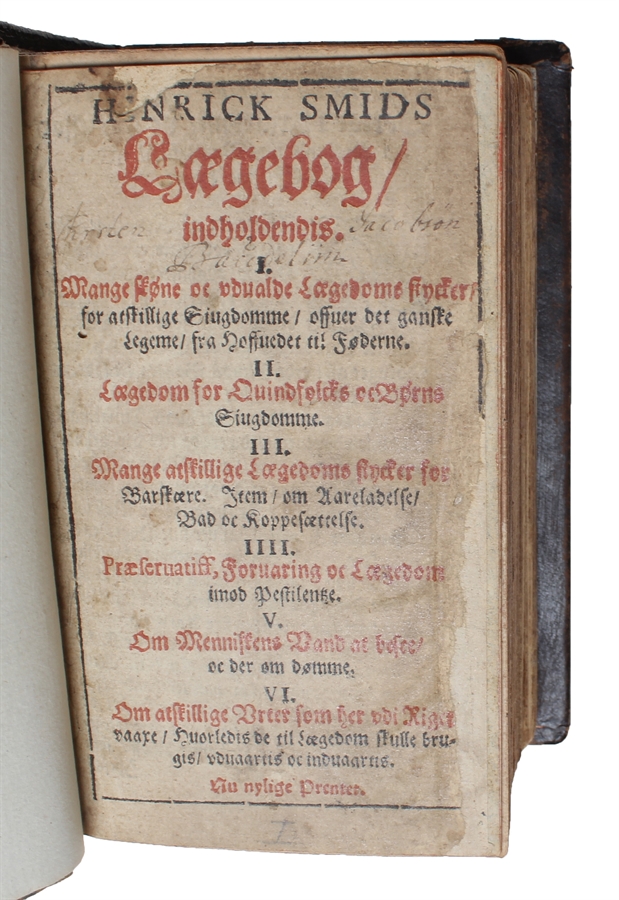 HENRICK SMIDS
Lægebog/
indholdendis. Jacobsøn
I.
Mange skøne oc vdualde Lægedoms stycker/
for atskillige Siugdomme/ offuer det ganske
Legeme/ fra Hoffuedet til Føderne.
II.
Lægedom for Quindfolcks oc Børns
Siugdomme.
III.
Mange atskillige Lægedoms stycker for
Barskære. Item/ om Aareladelse/
Bad oc Koppesættelse.
IIII.
Præseruatiff, Foruaring oc Lægedom
imod Pestilentze.
V.
Om Menniskens Vand at besee/
oc der om dømme.
VI.
Om atskillige Vrter som her vdi Riget
vaaxe/ Huorledis de til Lægedom skulle bru-
gis/ vduaartis oc induaartis.
Nu nylige Prentet.